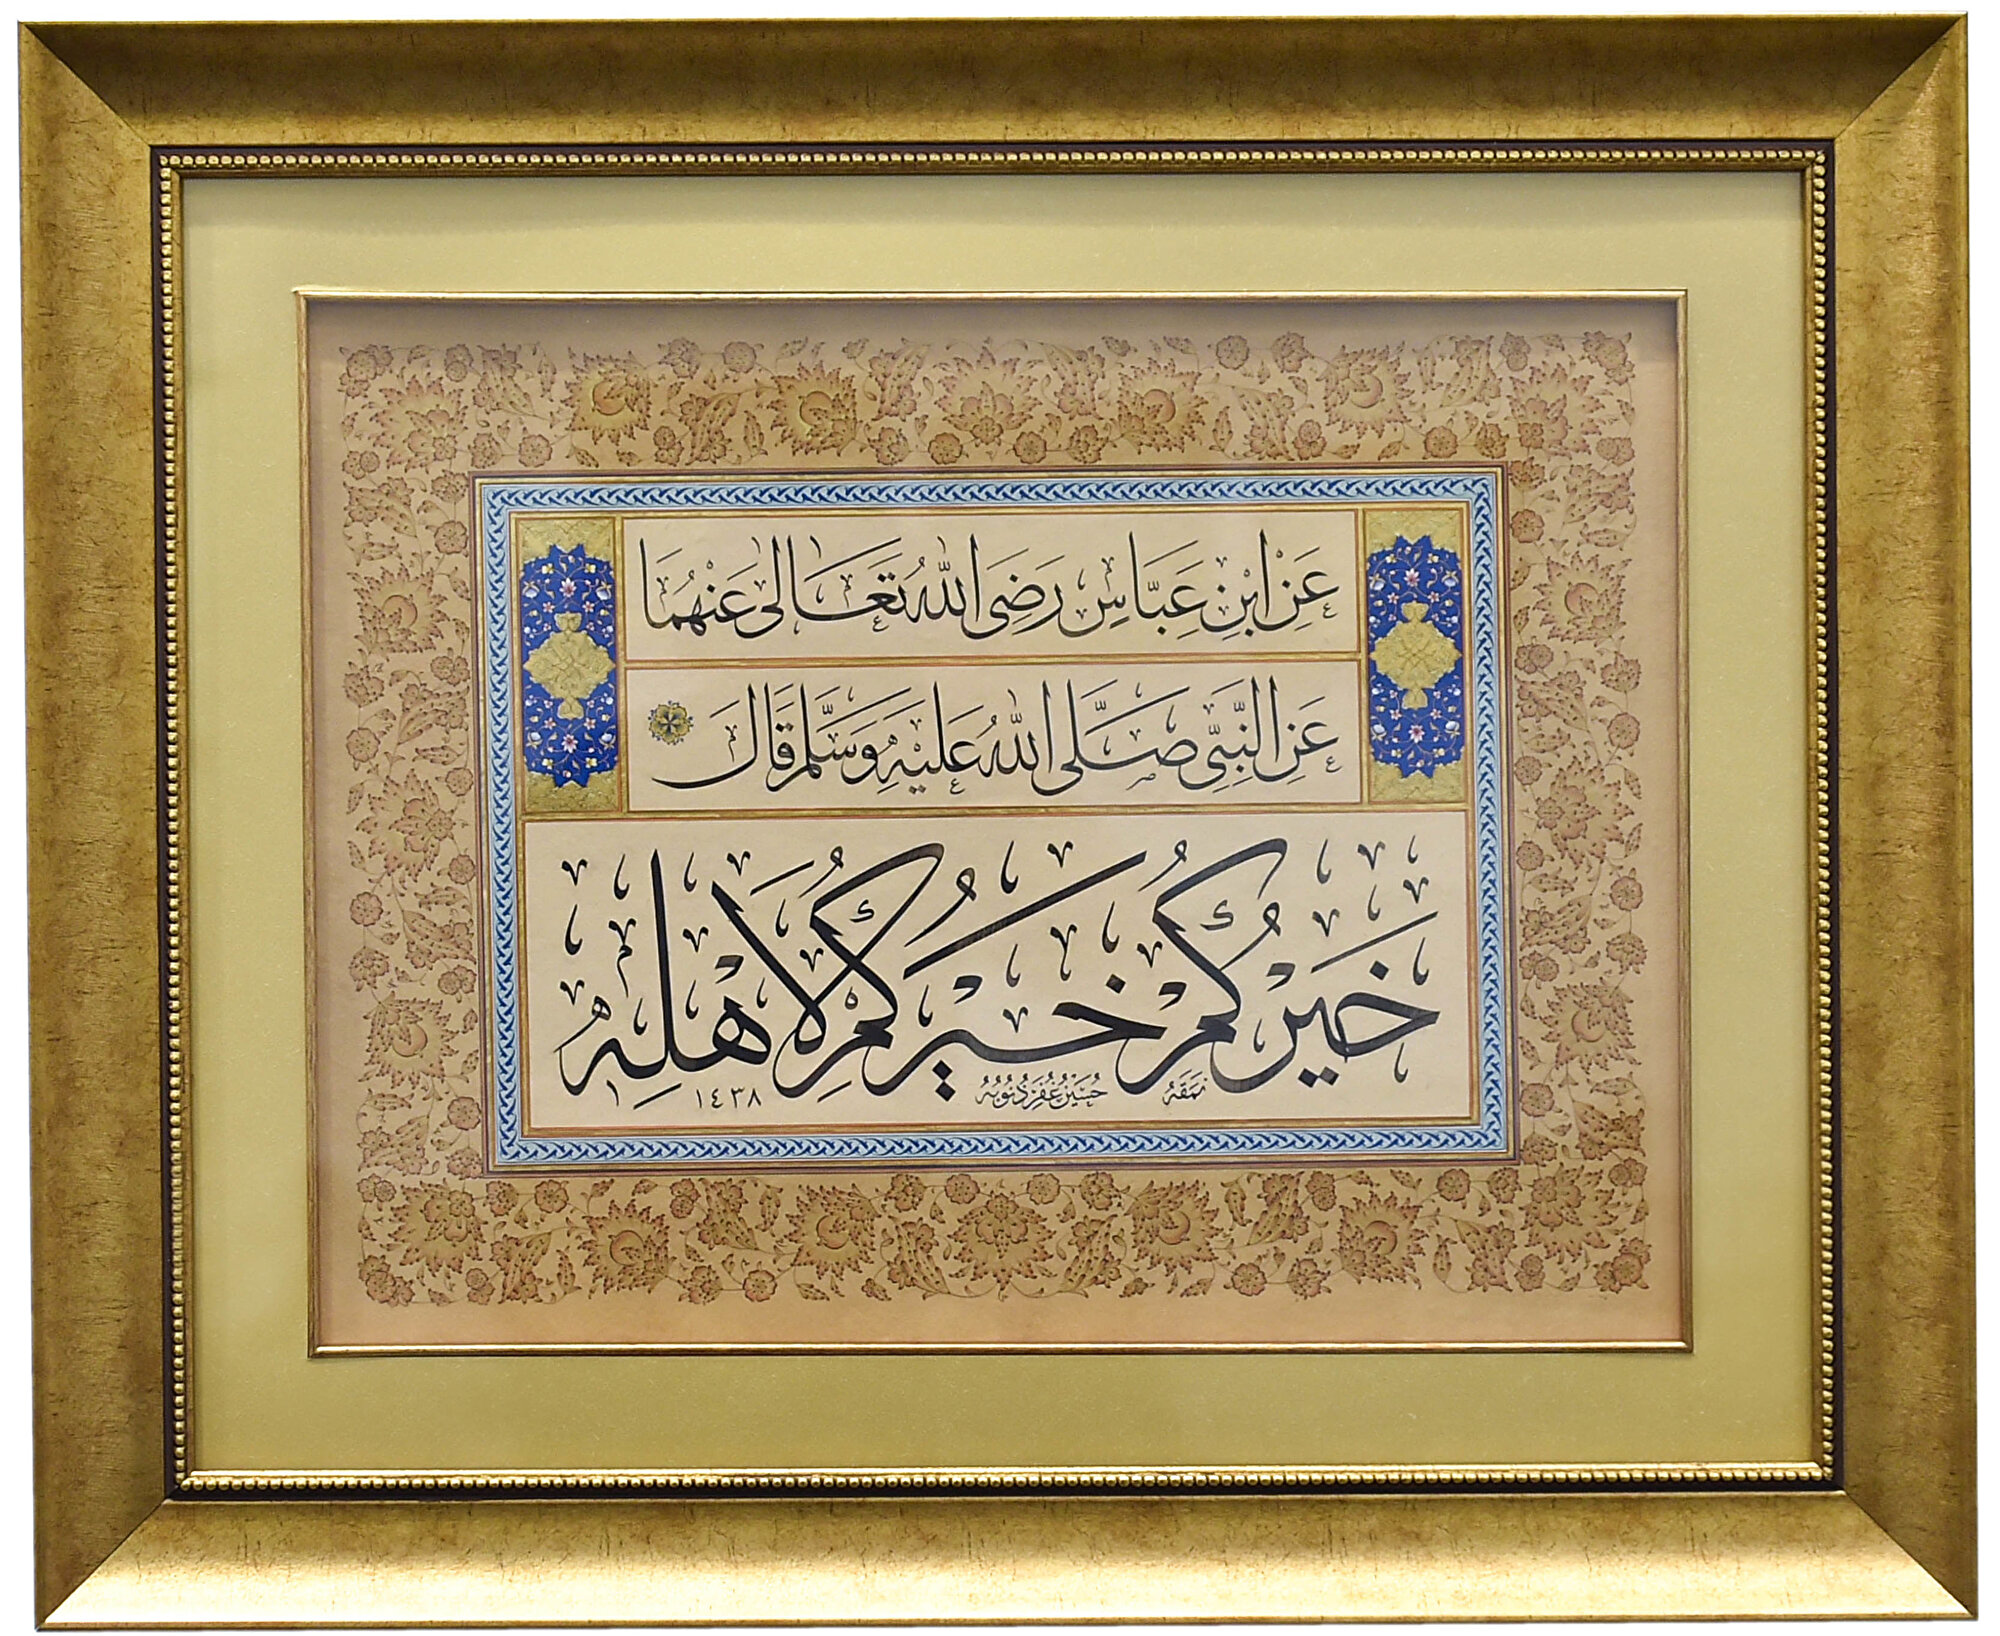 عَنِ ابْنِ عَبَّاسٍ رَضِىَ اللّٰهُ تَعَالٰى عَنْهُمَا
عَنِ النَّبِىِّ صَلَّى اللّٰهُ عَلَيْهِ وَسَلَّمَ قَالَ
خَيْرُكُمْ خَيْرُكُمْ لِاَهْلِهِ
نَمَقَهُ حُسَيْنْ غُفِرَ ذُنُوبُهُ ١٤٣٨